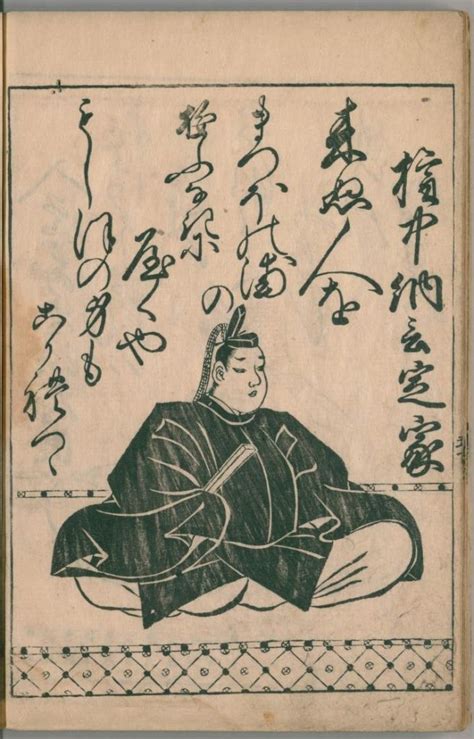 権中納言定家
来ぬ人を
まつほの浦の
やくや
もしほの身も
こかれつゝ